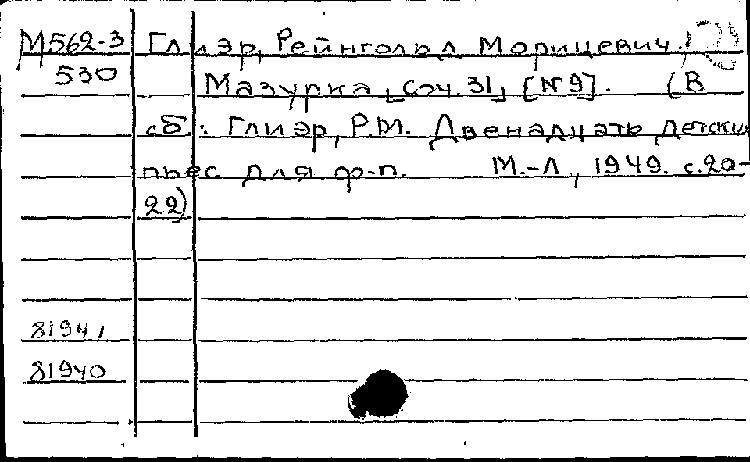 М562-3 Глиэр, Рейнгольд Морицевич,
530 Мазурка, соч. 31, [№ 9]. (В
сб.: Глиэр, Р.М. Двенадцать детских
пьес для ф-п. М.-Л, 1949. с.20-
22)
81941
81940